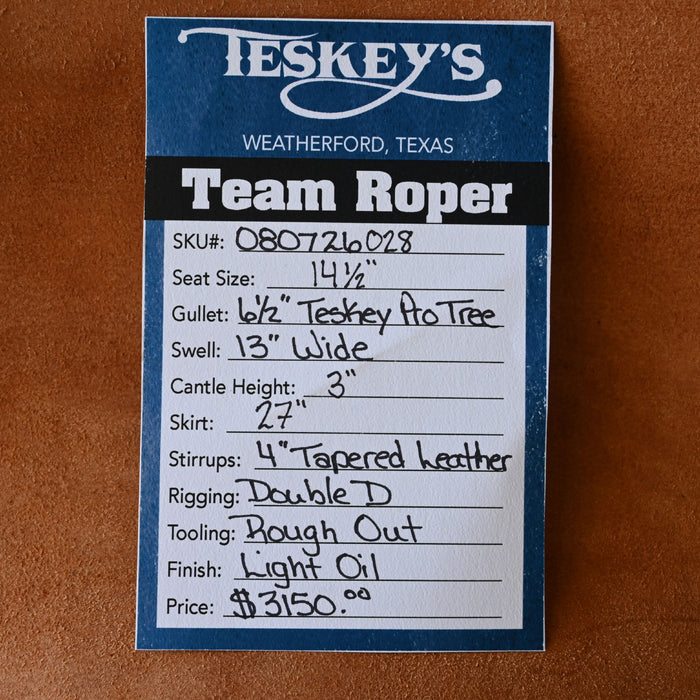 TESKEY'S
WEATHERFORD, TEXAS
Team Roper
SKU#: 080726028
Seat Size: 14 1/2"
Gullet: 6 1/2" Teskey Pro Tree
Swell: 13" Wide
Cantle Height: 3"
Skirt: 27"
Stirrups: 4" Tapered Leather
Rigging: Double D
Tooling: Rough Out
Finish: Light Oil
Price: $3150.00